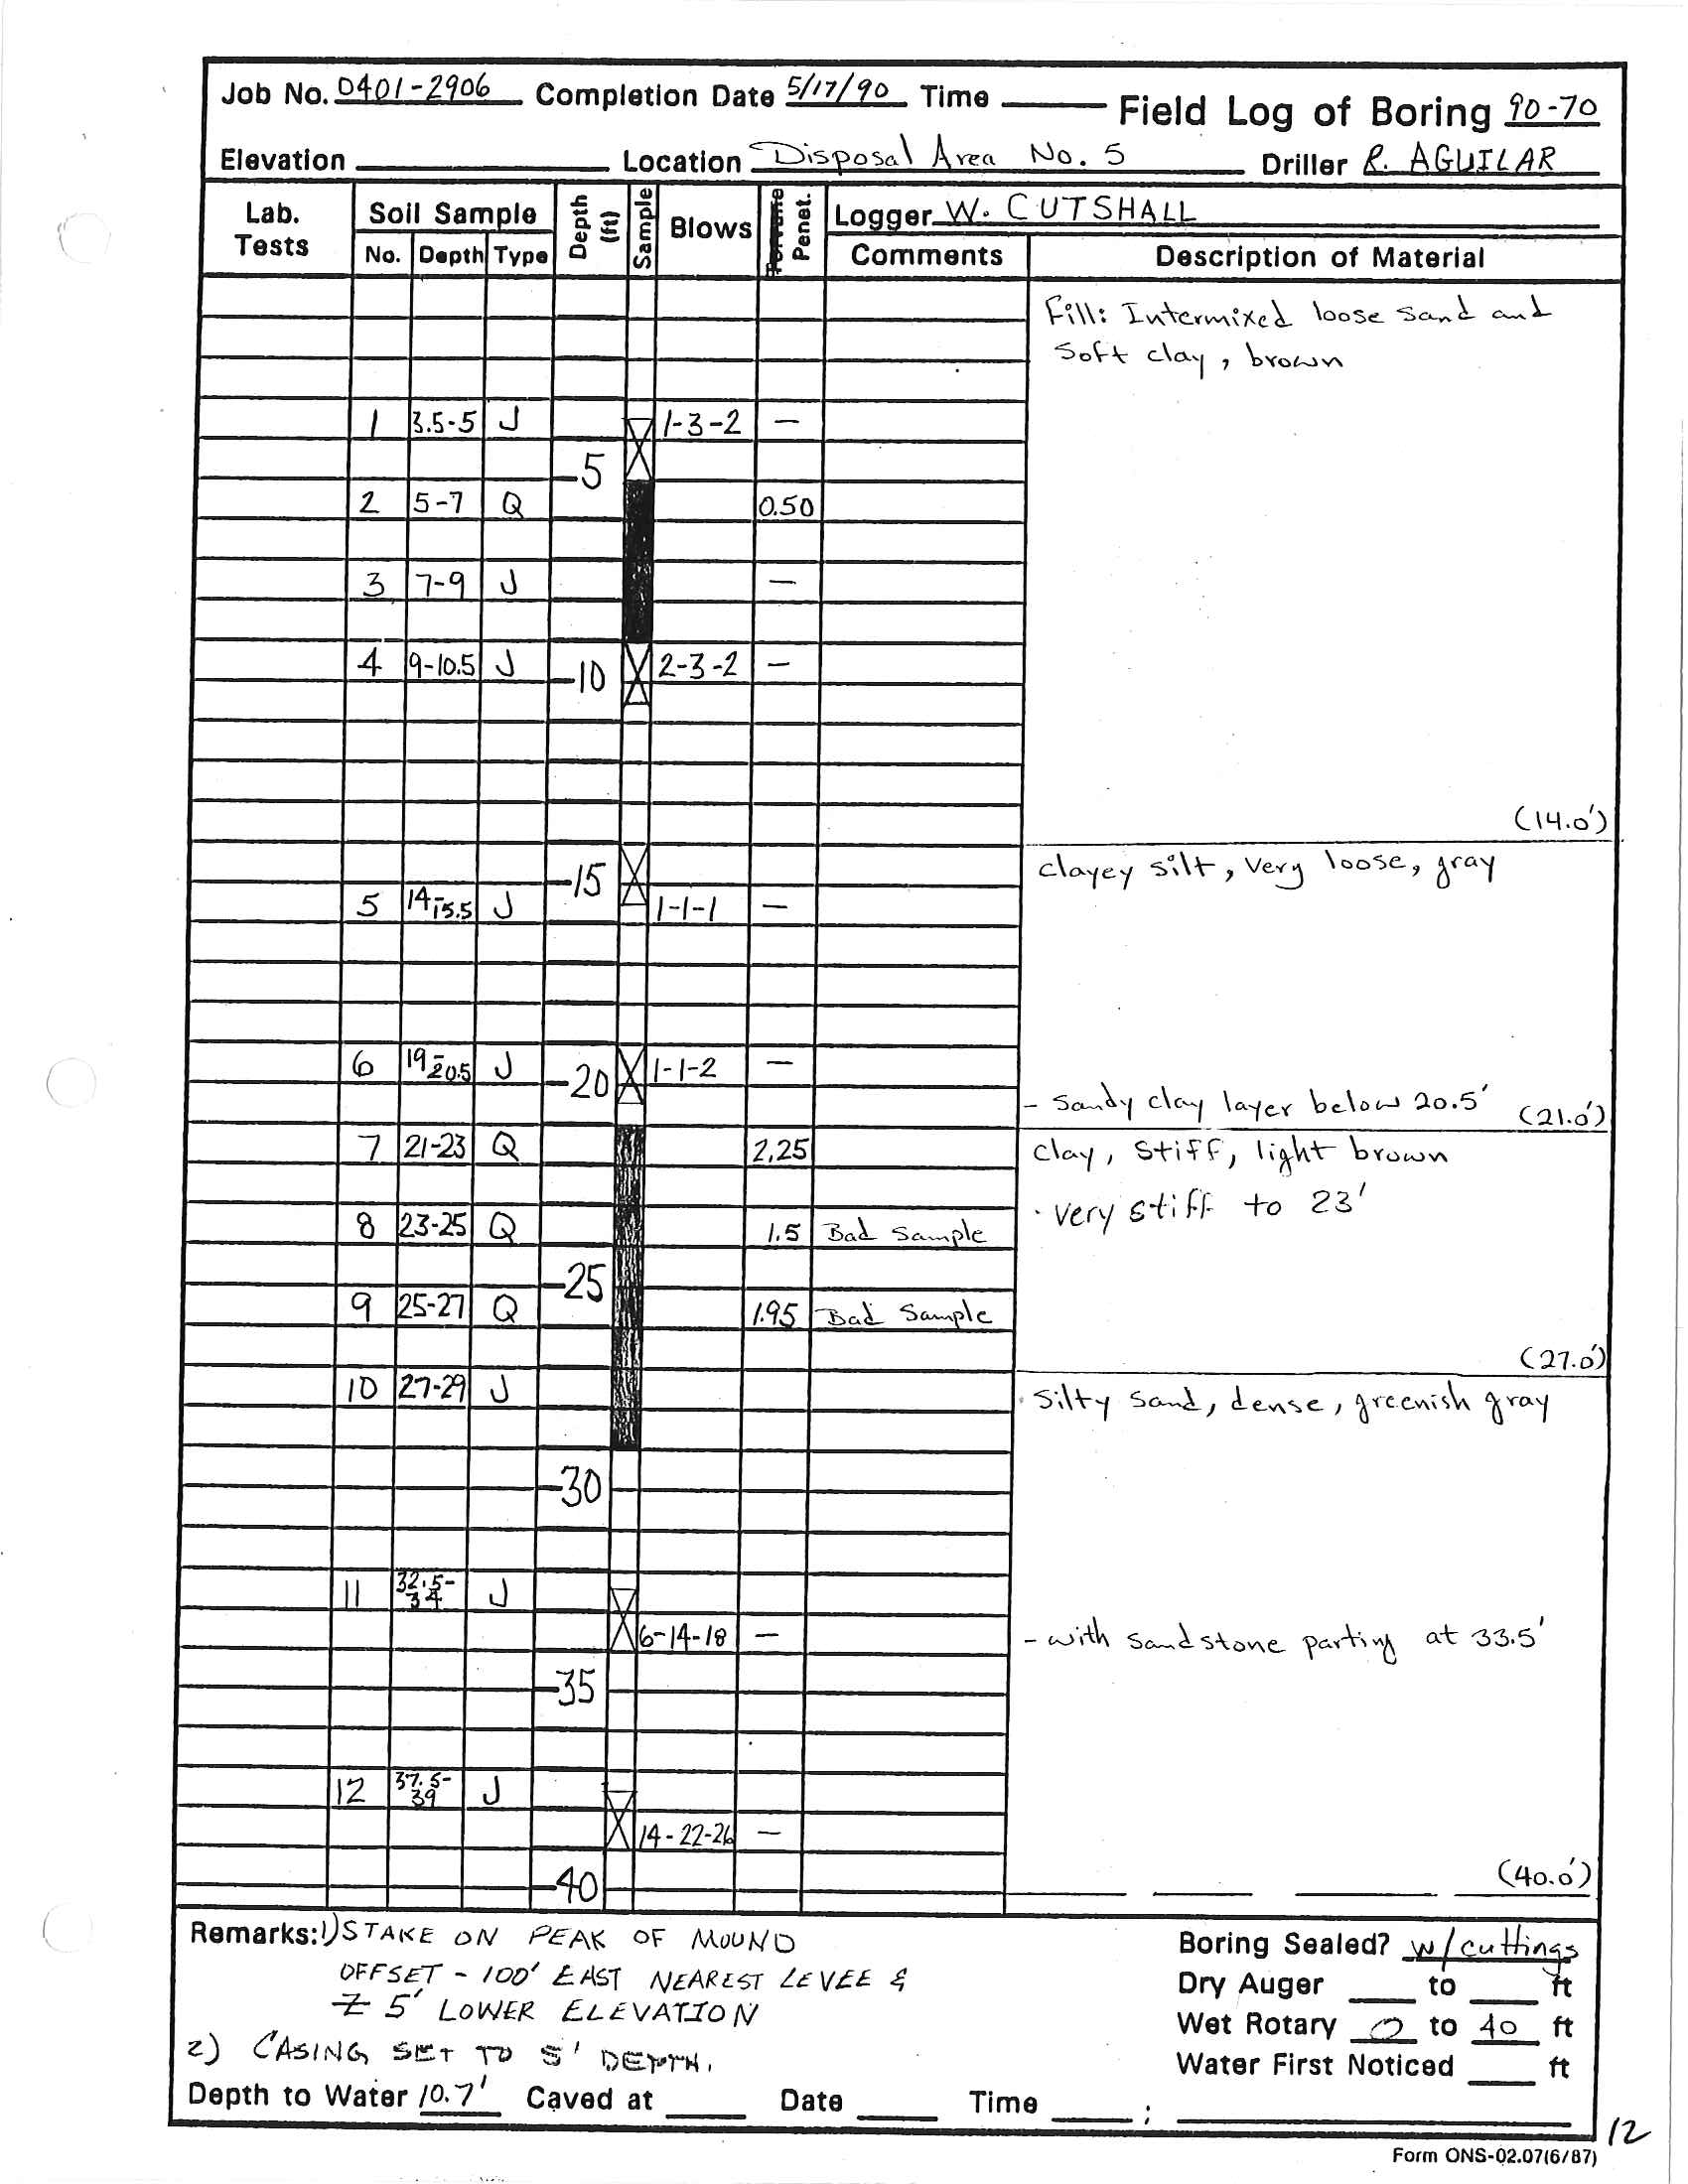 Job No. 0401-2906 Completion Date 5/17/90 Time ____ Field Log of Boring 90-70
Elevation ____ Location Disposal Area No. 5 Driller R. AGUILAR
Lab. Tests Soil Sample Depth (ft) Sample Blows Penet. Logger W. CUTSHALL
No. Depth Type Comments Description of Material
Fill: Intermixed loose sand and
soft clay, brown
1 3.5-5 J 1-3-2 —
5
2 5-7 Q 0.50
3 7-9 J —
4 9-10.5 J 10 2-3-2 —
(14.0')
15 clayey silt, very loose, gray
5 14-15.5 J 1-1-1 —
6 19-20.5 J 20 1-1-2 —
- sandy clay layer below 20.5' (21.0')
7 21-23 Q 2.25 clay, stiff, light brown
· very stiff to 23'
8 23-25 Q 1.5 Bad Sample
25
9 25-27 Q 1.95 Bad Sample
(27.0')
10 27-29 J silty sand, dense, greenish gray
30
11 32.5-34 J
6-14-18 — - with sandstone parting at 33.5'
35
12 37.5-39 J
14-22-26 —
40 (40.0')
Remarks: 1) STAKE ON PEAK OF MOUND Boring Sealed? w/cuttings
OFFSET - 100' EAST NEAREST LEVEE & Dry Auger ____ to ____ ft
5' LOWER ELEVATION Wet Rotary 0 to 40 ft
2) CASING SET TO 5' DEPTH. Water First Noticed ____ ft
Depth to Water 10.7' Caved at ____ Date ____ Time ____ ; ____
12
Form ONS-02.07(6/87)